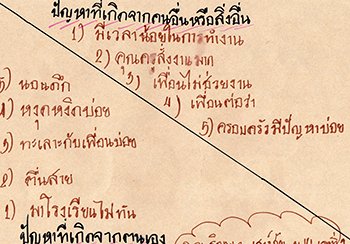 ปัญหาที่เกิดจากคนอื่นหรือสิ่งอื่น
1) มีเวลาน้อยในการทำงาน
2) คุณครูสั่งงานมาก
3) เพื่อนไม่ช่วยงาน
4) เพื่อนต่อว่า
5) ครอบครัวมีปัญหาบ่อย
5) นอนดึก
4) หงุดหงิดบ่อย
3) ทะเลาะกับเพื่อนบ่อย
2) ตื่นสาย
1) มาโรงเรียนไม่ทัน
ปัญหาที่เกิดจากตนเอง